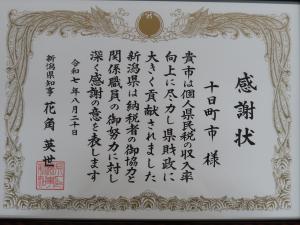 感謝状
十日町市 様
貴市は個人県民税の収入率
向上に尽力し県財政に
大きく貢献されました
新潟県は納税者の御協力と
関係職員の御努力に対し
深く感謝の意を表します
令和七年八月二十日
新潟県知事 花角英世